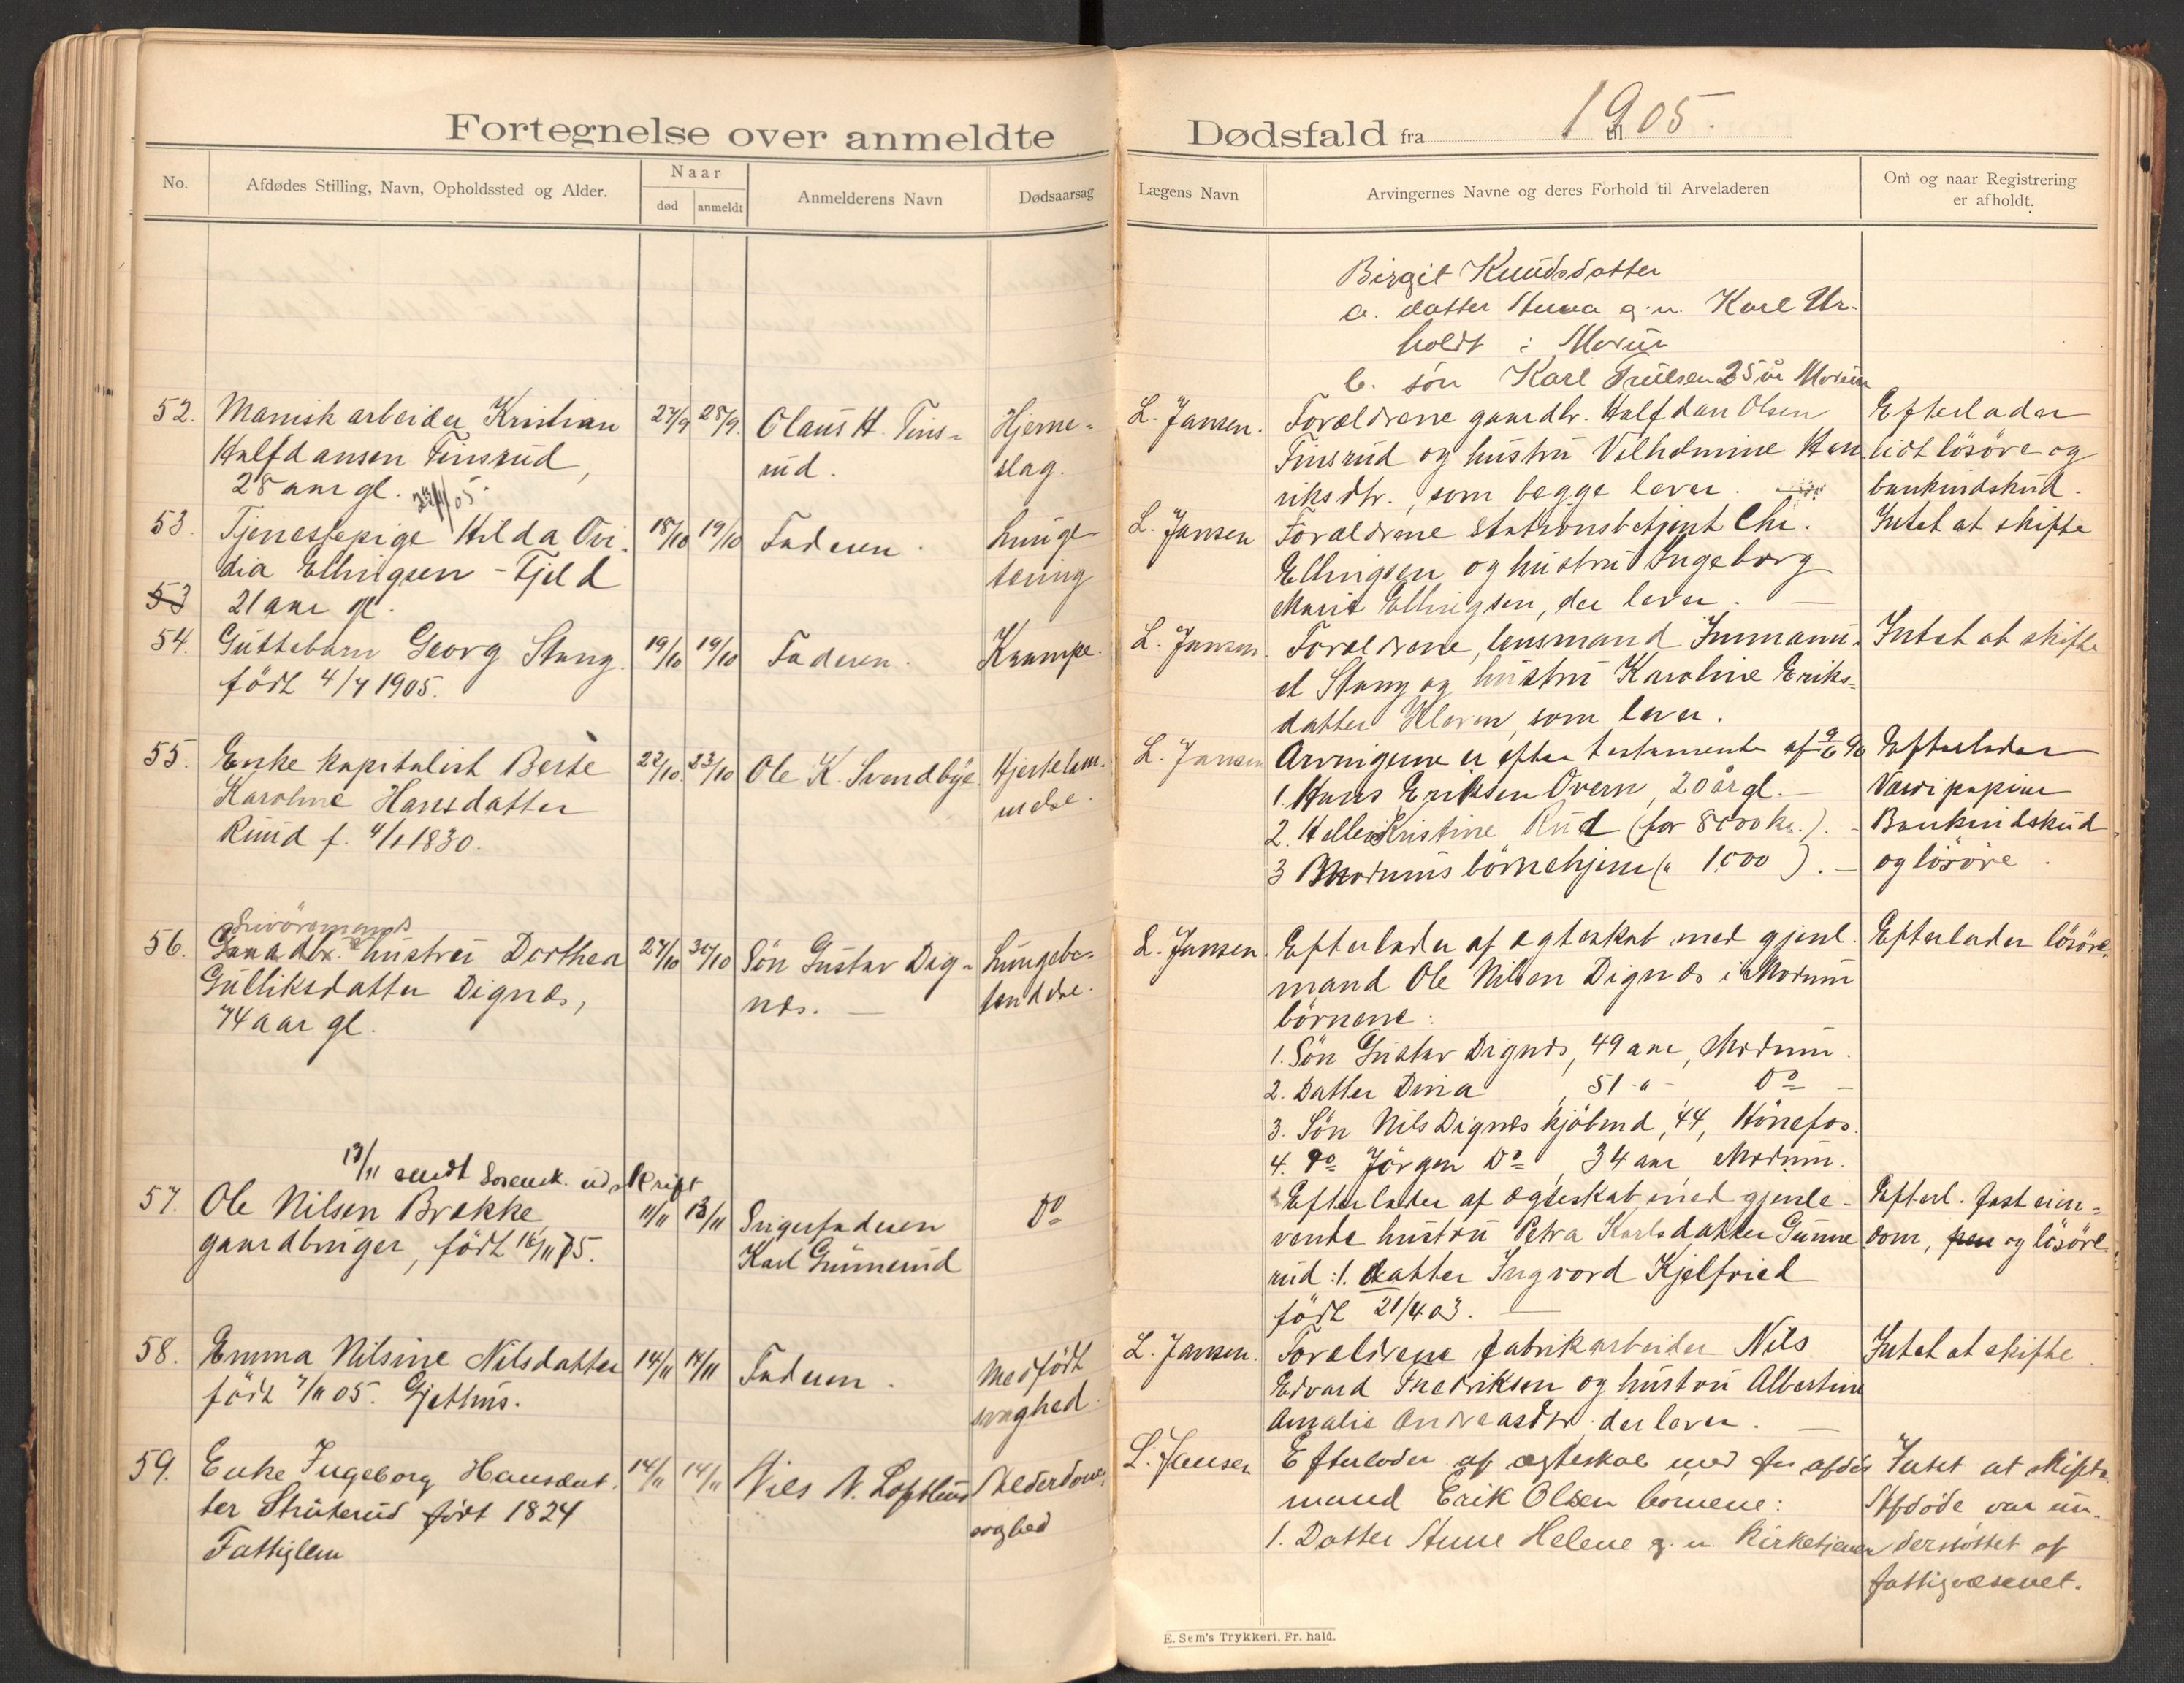 Fortegnelse over anmeldte
Dødsfald fra 1905. til
No.
Afdødes Stilling, Navn, Opholdssted og Alder.
Naar
død
anmeldt
Anmelderens Navn
Dødsaarsag
Lægens Navn
Arvingernes Navne og deres Forhold til Arveladeren
Om og naar Registrering
er afholdt.
Birgit Knudsdatter
a. datter Anna g. m. Karl Ur-
holdt i Modum
b. søn Karl Trulsen 25 år Modum
52. Manisk arbeider Kristian
Halfdansen Finsrud,
28 aar gl.
27/9 28/9
Olaus H. Fins-
rud.
Hjerne-
slag.
L. Jansen.
Forældrene gaardbr. Halfdan Olsen
Finsrud og hustru Vilhelmine Hen
riksdtr., som begge lever.
Efterlader
lidt løsøre og
bankindskud.
53. Tjenestepige Hilda Ovi-
dia Ellingsen - Fjeld
53 21 aar gl.
18/10 19/10
Faderen.
Lunge-
tæring
L. Jansen
Forældrene stationsbetjent Chr.
Ellingsen og hustru Ingeborg
Marit Ellingsen, der lever. —
Intet at skifte
54. Guttebarn Georg Stang.
født 4/7 1905.
19/10 19/10
Faderen.
Krampe.
L. Jansen.
Forældrene, lensmand Immanu-
el Stang og hustru Karoline Eriks-
datter Kleven, som lever.
Intet at skifte
55. Enke kapitalist Berte
Karoline Hansdatter
Ruud f. 4/1 1830.
22/10 23/10
Ole K. Svendbye
Hjertelam-
melse.
L. Jansen
Arvingerne er efter testamente af
1. Hans Eriksen Overn, 20 år gl. —
2. Hellen Kristine Rud (for 8000 kr.). -
3 Modums børnehjem (" 1000 ). —
Efterlader
Værdipapirer
Bankindskud,
og løsøre.
56. Livøremands
Gaardbr. hustru Dorthea
Gulliksdatter Dignæs,
74 aar gl.
27/10 30/10
Søn Gustav Dig-
næs. —
Lungebe-
tændelse.
L. Jansen.
Efterlader af ægteskab med gjenl.
mand Ole Nilsen Dignæs i Modum
børnene:
1. Søn Gustav Dignæs, 49 aar, Modum.
2. Datter Dina , 51 - " - Do —
3. Søn Nils Dignæs kjøbmd, 44, Hønefos.
4. Do Jørgen Do , 34 aar Modum.
Efterlader løsøre.
13/11 sendt Sorensk. udskrift
57. Ole Nilsen Brekke
gaardbruger, født 16/11 75.
11/11 13/11
Svigerfaderen
Karl Gunnerud
Do
Efterlader af ægteskab med gjenle-
vende hustru Petra Karlsdatter Gunne
rud: 1. datter Ingvord Kjelfried
født 21/4 03. —
Efterl. fast eien-
dom, og løsøre.
58. Emma Nilsine Nilsdatter
født 7/11 05. Gjethus.
14/11 14/11
Faderen.
Medfødt
svaghed.
L. Jansen.
Forældrene fabrikarbeider Nils
Edvard Fredriksen og hustru Albertine
Amalie Andreasdtr. der lever.
Intet at skifte.
59. Enke Ingeborg Hansdat-
ter Struterud født 1824
Fattiglem
14/11 14/11
Nils N. Lofthus
Alderdoms
svaghed
L. Jansen
Efterlader af ægteskab med før afdøde
mand Erik Olsen børnene:
1. Datter Anne Helene g. m. Kirketjener
Intet at skifte
Afdøde var un-
derstøttet af
fattigvæsenet.
E. Sem's Trykkeri, Fr. hald.